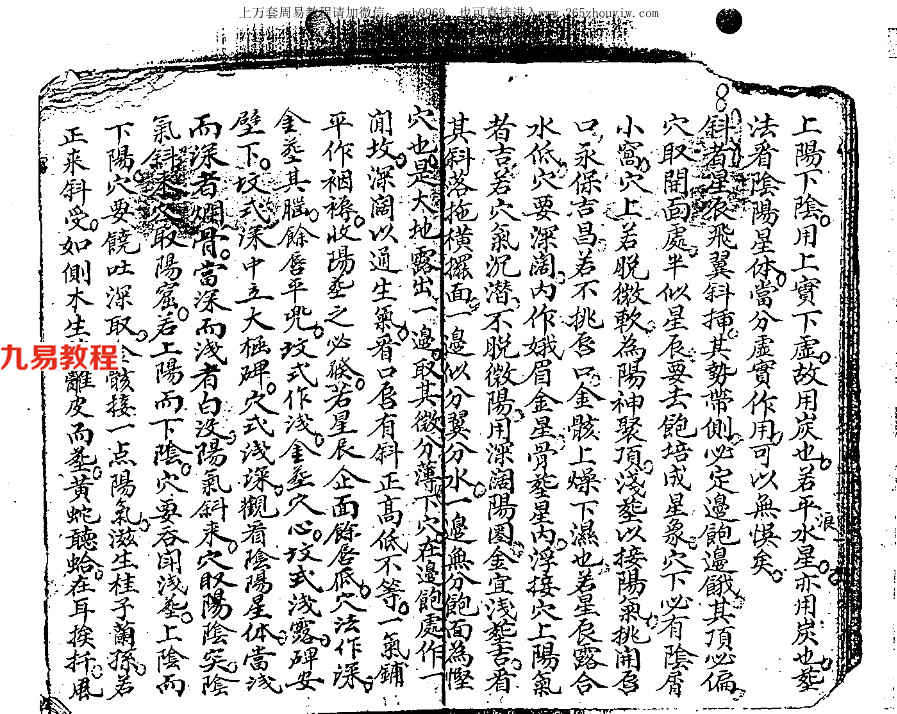 上万套周易教程请加微信：
也可直接进入www.265zhouyiw.com
上陽下陰用上實下虛故用炭也若平水星亦用炭也塟
浪
法看陰陽星体當分虛實作用可以無悞矣
斜者星辰飛翼斜揷其勢帶側必定邊飽邊餓其頂必偏
穴取開面處半似星辰要去飽培成星象穴下必有陰屑
小窩穴上若脫微軟為陽神聚頂淺塟以接陽氣挑開唇
口永保吉昌若不挑唇口金骸上燥下濕也若星辰露合
水低穴要深闊內作娥眉金星骨塟星內浮接穴上陽氣
者吉若穴氣沉潛不脫微陽用深濶陽圏金宜淺塟吉看
其斜落拖橫擺面一邊以分翼分水一邊無分飽面為慳
穴也是大地露出一邊取其微分薄下穴在邊飽處作一
閒坟深闊以通生氣看口唇有斜正高低不等一氣鋪
平作裀褥收陽塟之必發若星辰企面餘唇低穴法作深
金塟其腦餘唇平兜坟式作淺金塟穴心坟式淺露碑安
壁下坟式深中立大極碑穴式淺深觀看陰陽星体當淺
而深者爛骨當深而淺者白沒陽氣斜来穴取陽陰突陰
氣斜来穴取陽窟若上陽而下陰穴要吞閒淺塟上陰而
下陽穴要饒吐深取金骸接一点陽氣滋生桂子蘭孫若
正来斜受如側木生離皮而塟黃蛇聽蛤在耳挨扦風
九易教程